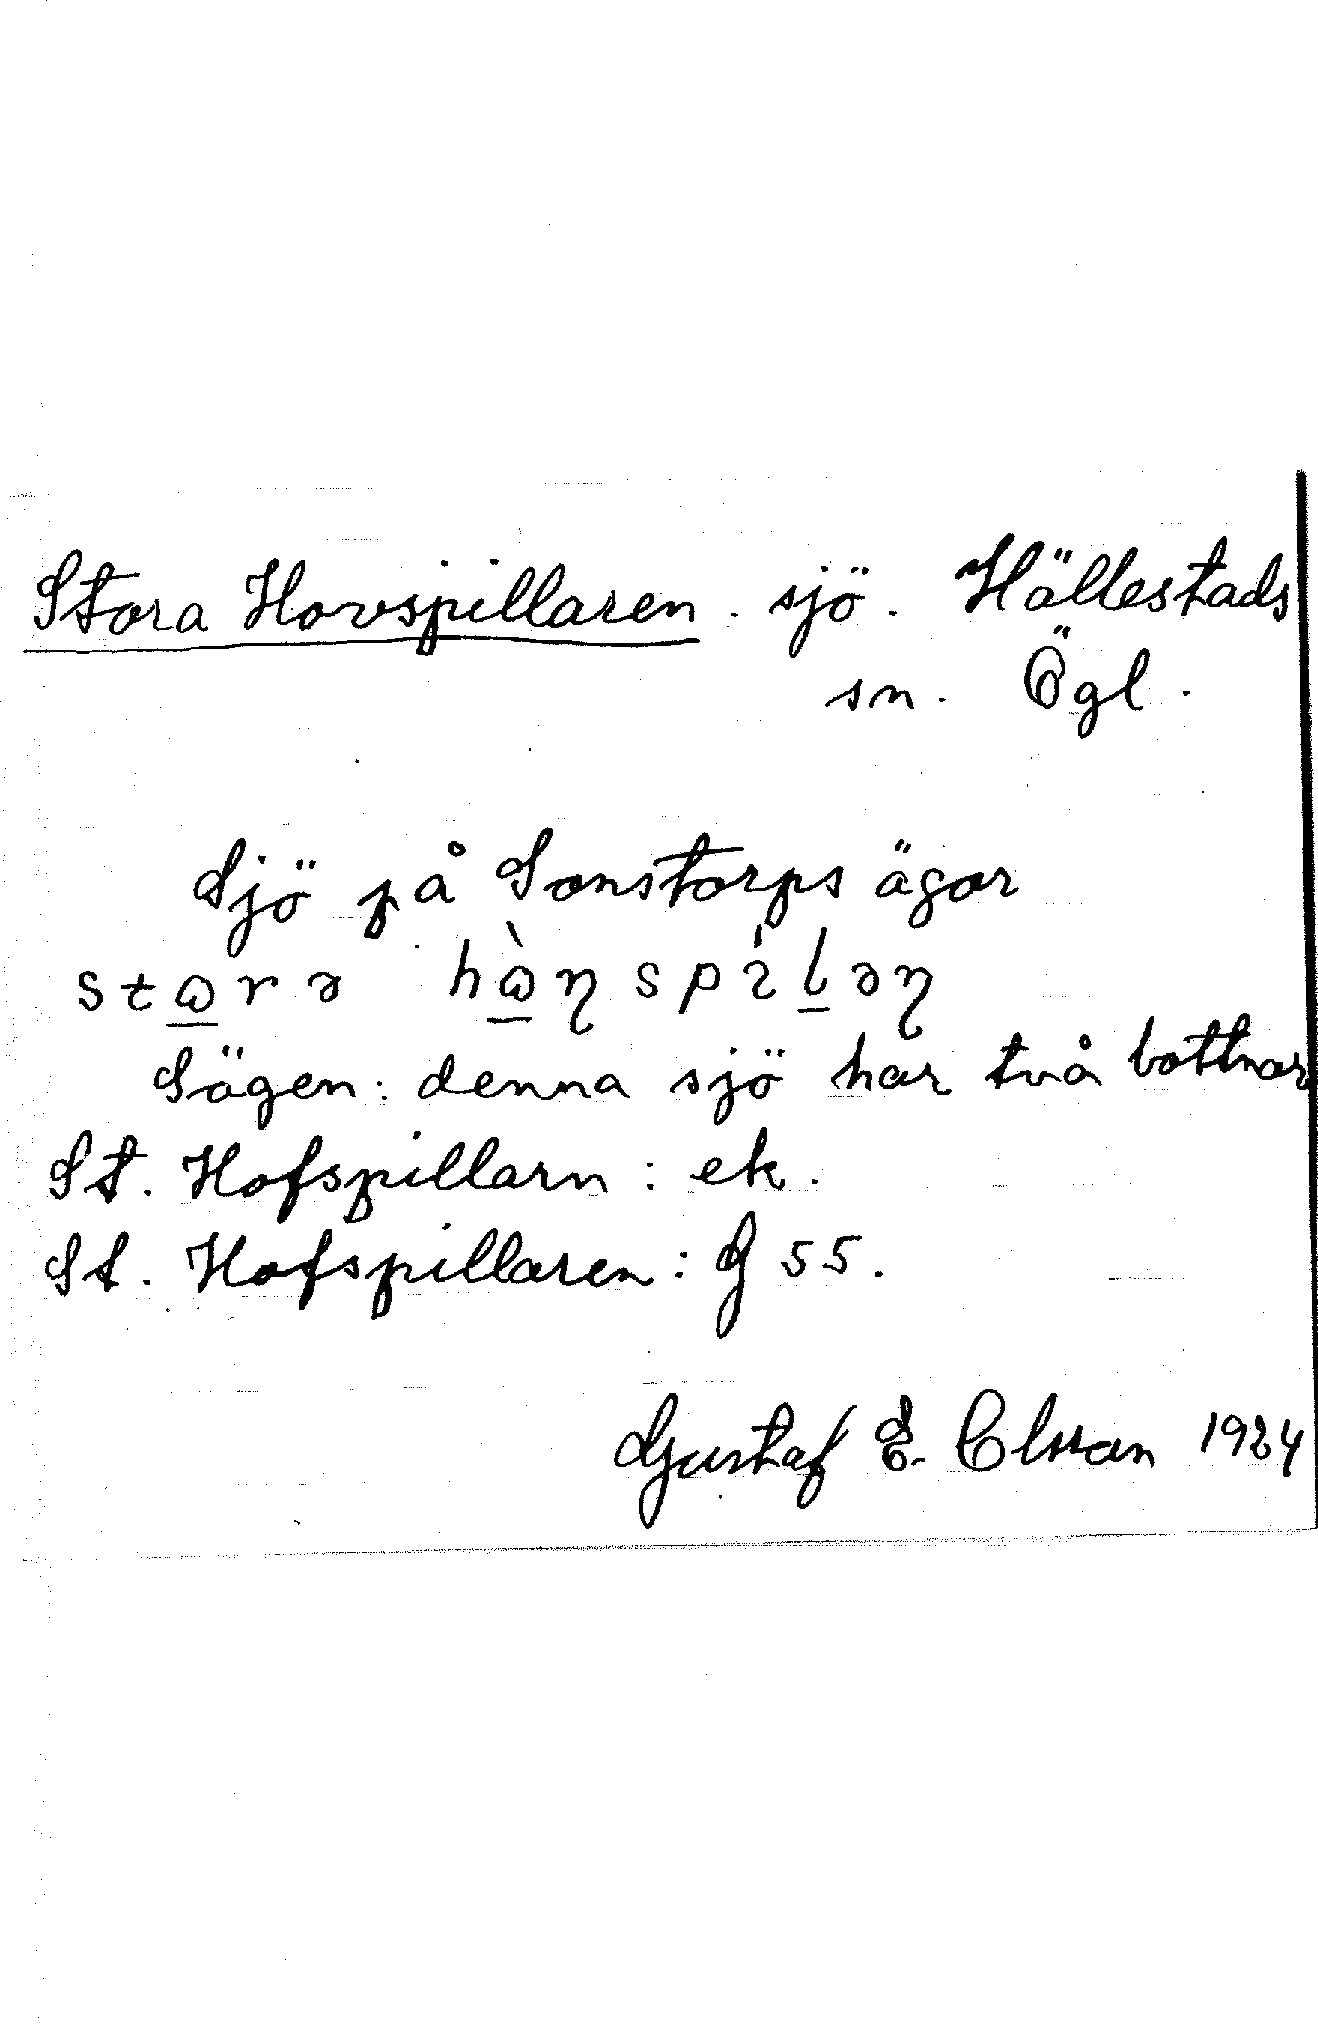 Stora Hovspillaren. sjö. Hällestads
sn. Ögl.
Sjö på Sonstorps ägor
Sägen: denna sjö har två bottnar
St. Hofspillarn: ek.
St. Hofspillaren: G 55.
Gustaf E. Olsson 1924